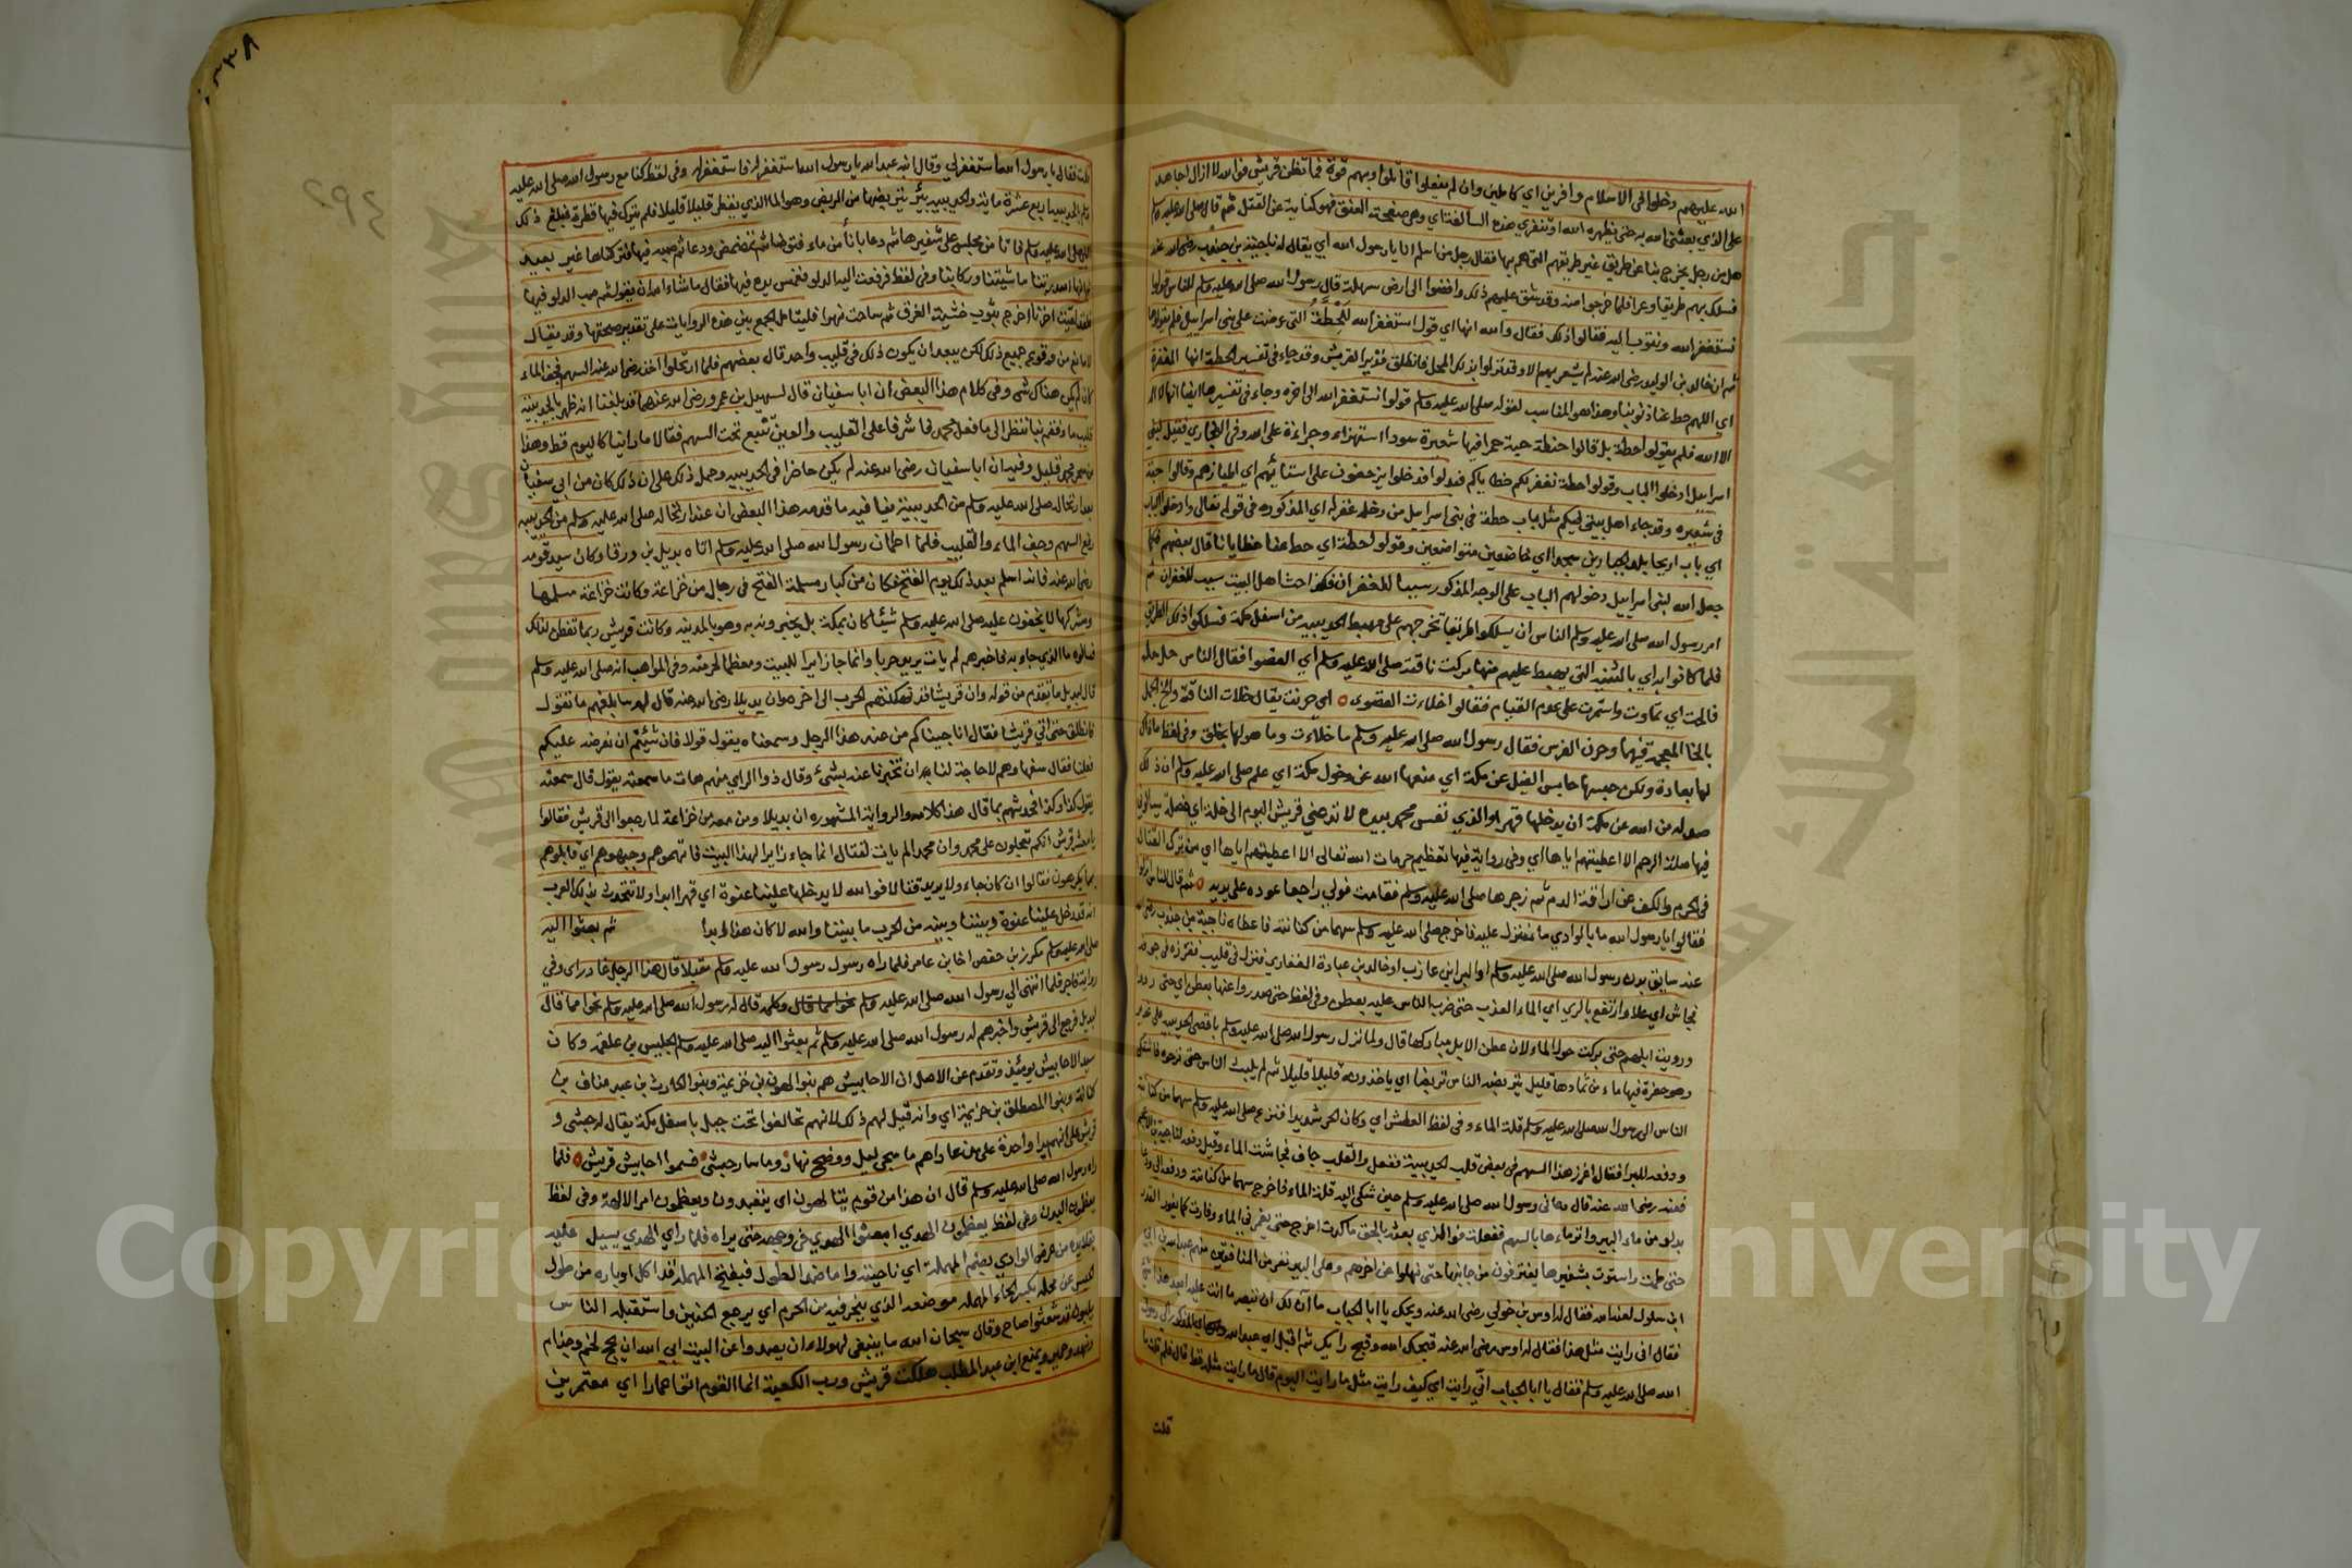 الله عليهم دخلوا في الاسلام وافرين اي كاملين وان لم يفعلوا قاتلوا وبهم قوة فما تظن قريش فوالله لا ازال اجاهد
على الذي بعثني الله به حتى يظهره الله او تنفرد هذه السالفة اي وهي صفحة العنق فهو كناية عن القتل ثم قال صلى الله عليه وسلم
هل من رجل يخرج بنا عن طريق غير طريقهم التي هم بها فقال رجل من اسلم انا يا رسول الله اي يقال له ناجية بن جندب رضي الله عنه
فسلك بهم طريقا وعرا فلما خرجوا منه وقد شق عليهم ذلك وافضوا الى ارض سهلة قال رسول الله صلى الله عليه وسلم للناس قولوا
نستغفر الله ونتوب اليه فقالوا ذلك فقال والله انها اي قول استغفر الله للحطة التي عرضت على بني اسرائيل فلم يقولوها
ثم ان خالد بن الوليد رضي الله عنه لم يشعر بهم الا وقد نزلوا بذلك المحل فانطلق نذيرا لقريش وقد جاء في تفسير الحطة انها المغفرة
اي اللهم حط عنا ذنوبنا وهذا هو المناسب لقوله صلى الله عليه وسلم قولوا نستغفر الله الى اخره وجاء في تفسيرها ايضا انها لا اله
الا الله فلم يقولوا حطة بل قالوا حنطة حبة حمرا فيها شعيرة سودا استهزاء وجراءة على الله وفي البخاري فقيل لبني
اسراييل ادخلوا الباب وقولوا حطة نغفر لكم خطاياكم فبدلوا فدخلوا يزحفون على استائهم اي اطيازهم وقالوا حبة
في شعيره وقد جاء اهل بيتي فيكم مثل باب حطة في بني اسراييل من دخله غفر له اي المذكوره في قوله تعالى وادخلوا الباب
اي باب اريحا بلد الجبارين سجدا اي خاضعين متواضعين وقولوا حطة اي حط عنا خطايانا قال بعضهم فكما
جعل الله لبني اسراييل دخولهم الباب على الوجه المذكور سببا للغفران فكذا حب اهل البيت سبب للغفران ثم
امر رسول الله صلى الله عليه وسلم الناس ان يسلكوا طريقا تخرجهم على مهبط الحديبيه من اسفل مكة فسلكوا ذلك الطريق
فلما كانوا به اي بالثنية التي يهبط عليهم منها بركت ناقته صلى الله عليه وسلم اي القصوا فقال الناس حل حل
فالحت اي تمادت واستمرت على عدم القيام فقالوا خلاءت القصوى اي حرنت يقال خلات الناقة والخ الجمل
بالخا المعجمة فيهما وحرن الفرس فقال رسول الله صلى الله عليه وسلم ما خلاءت وما هو لها بخلق وفي لفظ ما ذاك
لها بعادة ولكن حبسها حابس الفيل عن مكة اي منعها الله عن دخول مكة اي علم صلى الله عليه وسلم ان ذلك
صد له من الله عن مكة ان يدخلها قهرا والذي نفس محمد بيده لا تدعني قريش اليوم الى خلة اي خصلة يسالون
فيها صلة الرحم الا اعطيتهم اياها اي وفي رواية فيها تعظيم حرمات الله تعالى الا اعطيتهم اياها اي من ترك القتال
في الحرم والكف عن اراقة الدم ثم زجرها صلى الله عليه وسلم فقامت فولى راجعا عوده على بديه ثم قال للناس انزلوا
فقالوا يا رسول الله ما بالوادي ما ننزل عليه فاخرج صلى الله عليه وسلم سهما من كنانته فاعطاه ناجية بن جندب رضي الله
عنه سايق بدن رسول الله صلى الله عليه وسلم او البرا بن عازب او خالد بن عبادة الغفاري فنزل في قليب فغرزه في جوفه
فجاش اي علا وارتفع بالري اي الماء العذب حتى ضرب الناس عليه بعطن وفي لفظ حتى صدروا عنها بعطن اي حتى رووا
ورويت ابلهم حتى بركت حول الماء لان عطن الابل مباركها قال ولما نزل رسول الله صلى الله عليه وسلم باقصى الحديبيه على ثمد
وهو حفرة فيها ماء من ثمادها قليل يتربضه الناس تربضا اي ياخذونه قليلا قليلا ثم لم يلبث الناس حتى نزحوه فاشتكى
الناس الى رسول الله صلى الله عليه وسلم قلة الماء وفي لفظ العطش اي وكان الحر شديدا فنزع صلى الله عليه وسلم سهما من كنانته
ودفعه للبرا فقال اغرز هذا السهم في بعض قليب الحديبية ففعل والقليب جاف فجاشت الماء وقيل دفعه لناجية بن الاعجم
فعنه رضي الله عنه قال دعاني رسول الله صلى الله عليه وسلم حين شكي اليه قلة الماء فاخرج سهما من كنانته ودفعه الي ودعا
بدلو من ماء البير وانزماءها بالسهم ففعلت فوالذي بعثه بالحق ما كدت اخرج حتى يغمرني الماء وفارت كما يفور القدر
حتى طمت واستوت بشفيرها يغترفون من جانبها حتى نهلوا عن اخرهم وعلى البير نفر من المنافقين منهم عبد الله بن ابي
ابن سلول لعنه الله فقال له اوس بن خولي رضي الله عنه ويحك يا ابا الحباب ما آن لك ان تبصر ما انت عليه ابعد هذا شي
فقال اني رايت مثل هذا فقال له اوس رضي الله عنه قبحك الله وقبح رايك ثم اقبل اي عبد الله المذكور الى رسول
الله صلى الله عليه وسلم فقال يا ابا الحباب انى رايت اي كيف رايت مثل ما رايت اليوم قال ما رايت مثله قط قال فلم قلت ما
قلت
٢٩٤
قلت فقال يا رسول الله استغفر لي وقال ابنه عبد الله يا رسول الله استغفر له فاستغفر له وفي لفظ كنا مع رسول الله صلى الله عليه
وسلم بالحديبيه اربع عشرة ماية والحديبيه بئر نتربضها من البربض وهو الماء الذي يقطر قليلا قليلا فلم نترك فيها قطرة فبلغ ذلك
النبي صلى الله عليه وسلم فاتانا فجلس على شفيرها ثم دعا باناء من ماء فتوضا ثم تمضمض ودعا ثم صبه فيها فتركناها غير بعيد
ثم انها اصدرتنا ما شيتنا وركابنا وفي لفظ فرفعت اليه الدلو فغمس يده فيها فقال ما شاء الله ان يقول ثم صب الدلو فيها
فلقد لقيت اخرنا اخرج بثوب خشية الغرق ثم ساحت نهرا فليتامل الجمع بين هذه الروايات على تقدير صحتها وقد يقال
لا مانع من وقوع جميع ذلك لكن يبعد ان يكون ذلك في قليب واحد قال بعضهم فلما ارتحلوا اخذ رضي الله عنه السهم فجف الماء
كان لم يكن هناك شي وفي كلام هذا البعض ان ابا سفيان قال لسهيل بن عمرو رضي الله عنهما قد بلغنا انه ظهر بالحديبية
قليب ماء فقم بنا ننظر الى ما فعل محمد فاشرفا على القليب والعين تنبع تحت السهم فقالا ما راينا كاليوم قط وهذا
من سحر محمد قليل وفيه ان ابا سفيان رضي الله عنه لم يكن حاضرا في الحديبيه وحمل ذلك على ان ذلك كان من ابي سفيان
بعد ارتحاله صلى الله عليه وسلم من الحديبية ينافيه ما قدمه هذا البعض ان عند ارتحاله صلى الله عليه وسلم من الحديبيه
رفع السهم وجف الماء والقليب فلما اطمان رسول الله صلى الله عليه وسلم اتاه بديل بن ورقا وكان سيد قومه
رضي الله عنه فانه اسلم بعد ذلك يوم الفتح فكان من كبار مسلمة الفتح في رجال من خزاعة وكانت خزاعة مسلمها
ومشركها لا يخفون عليه صلى الله عليه وسلم شيئا كان بمكة بل يخبرونه به وهو بالمدينه وكانت قريش ربما تفطن لذلك
فسالوه ما الذي جاء به فاخبرهم لم يات يريد حربا وانما جا زايرا للبيت ومعظما لحرمته وفي المواهب انه صلى الله عليه وسلم
قال لبديل ما تقدم من قوله وان قريشا قد نهكتهم الحرب الى اخره وان بديلا رضي الله عنه قال له سابلغهم ما تقول
فانطلق حتى اتي قريشا فقال انا جيناكم من عند هذا الرجل وسمعناه يقول قولا فان شئتم ان نعرضه عليكم
فعلنا فقال سفهاوهم لا حاجة لنا بان تخبرنا عنه بشئ وقال ذوا الراي منهم هات ما سمعته يقول قال سمعته
يقول كذا وكذا فحدثهم بما قال هذا كلامه والرواية المشهوره ان بديلا ومن معه من خزاعة لما رجعوا الى قريش فقالوا
يا معشر قريش انكم تعجلون على محمد وان محمدا لم يات لقتال انما جاء زايرا لهذا البيت فاتهموهم وجبهوهم اي قابلوهم
بما يكرهون فقالوا ان كان جاء ولا يريد قتالا فوالله لا يدخلها علينا عنوة اي قهرا ابدا ولا تتحدث بذلك العرب
انه قد دخل علينا عنوة وبيننا وبينه من الحرب ما بيننا والله لا كان هذا ابدا ثم بعثوا اليه
صلى الله عليه وسلم مكرز بن حفص اخا بني عامر فلما راه رسول الله صلى الله عليه وسلم مقبلا قال هذا الرجل غادر اي وفي
رواية فاجر فلما انتهى الى رسول الله صلى الله عليه وسلم وكلمه قال له رسول الله صلى الله عليه وسلم نحوا مما قال
لبديل فرجع الى قريش واخبرهم له رسول الله صلى الله عليه وسلم ثم بعثوا اليه صلى الله عليه وسلم الحليس بن علقمة وكان
سيد الاحابيش يومئذ وتقدم عن الاصل ان الاحابيش هم بنوا الهون بن خزيمة وبنوا الحارث بن عبد مناف بن
كنانة وبنوا المصطلق بن خزيمة اي وانه قيل لهم ذلك لانهم تحالفوا تحت جبل باسفل مكة يقال له حبشي و
قريش على انهم يدا واحدة على من عاداهم ما سجى ليل ووضح نهار وما سار حبشي فسموا احابيش قريش فلما
راه رسول الله صلى الله عليه وسلم قال ان هذا من قوم يتالهون اي يتعبدون ويعظمون امر الاله وفي لفظ
يعظمون البدن وفي لفظ يعظمون الهدي ابعثوا الهدي في وجهه حتى يراه فلما راي الهدي يسيل عليه
بقلايده من عرض الوادي بضم المهملة اي ناحيته واما ضد الطول فبفتح المهملة قد اكل اوباره من طول
الحبس عن محله بكسر الحاء المهملة موضعه الذي ينحر فيه من الحرم اي يرجع الحنين واستقبله الناس
يلبون قد شعثوا صاح وقال سبحان الله ما ينبغي لهولاء ان يصدوا عن البيت ابي الله ان يحج لخم وجذام
ونهد وحمير ويمنع ابن عبد المطلب هلكت قريش ورب الكعبة انما القوم اتوا عمارا اي معتمرين
Copyright University